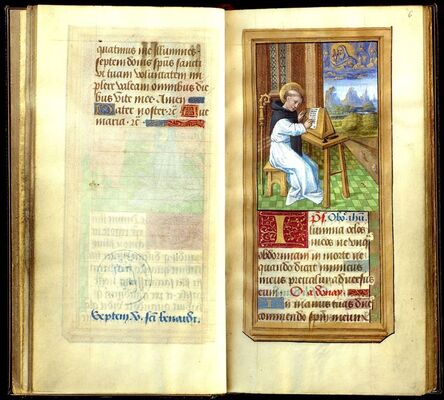 quatinus me illumines
septem donis spūs sancti
ut tuam voluntatem im
plere valeam omnibus die
bus vite mee Amen
Pater noster ꝛc Aue
maria ꝛc
Septem ꝟ. sci benardi.
6
O bo ihu
Illumina oclos
meos ne vnqͣ
obdormiam in morte ne
quando dicat inimicus
meus preualui aduersus
eum O adonay
In manus tuas dñe
commendo spm meum